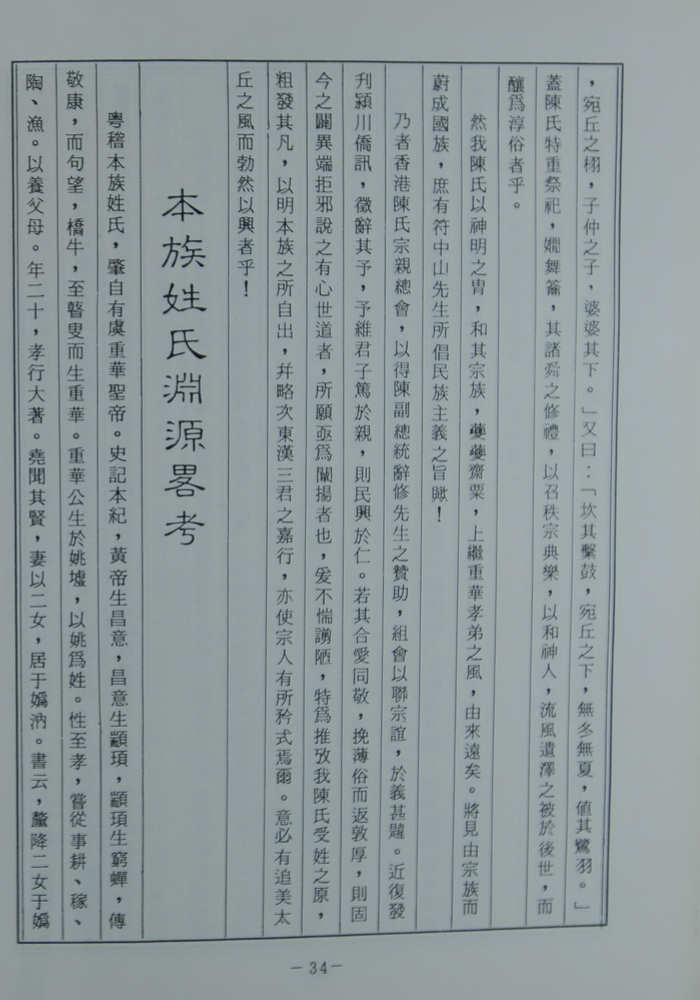 ，宛丘之栩，子仲之子，婆婆其下。」又曰：「坎其擊鼓，宛丘之下，無冬無夏，值其鷺羽。」
蓋陳氏特重祭祀，嫺舞籥，其諸舜之修禮，以召秩宗典樂，以和神人，流風遺澤之被於後世，而
釀爲淳俗者乎。
然我陳氏以神明之胄，和其宗族，夔夔齋粟，上繼重華孝弟之風，由來遠矣。將見由宗族而
蔚成國族，庶有符中山先生所倡民族主義之旨歟！
乃者香港陳氏宗親總會，以得陳副總統辭修先生之贊助，組會以聯宗誼，於義甚韙。近復發
刋潁川僑訊，徵辭其予，予維君子篤於親，則民興於仁。若其合愛同敬，挽薄俗而返敦厚，則固
今之闢異端拒邪說之有心世道者，所願亟爲闡揚者也，爰不惴謭陋，特爲推攷我陳氏受姓之原，
粗發其凡，以明本族之所自出，幷略次東漢三君之嘉行，亦使宗人有所矜式焉爾。意必有追美太
丘之風而勃然以興者乎！
本族姓氏淵源畧考
粵稽本族姓氏，肇自有虞重華聖帝。史記本紀，黃帝生昌意，昌意生顓頊，顓頊生窮蟬，傳
敬康，而句望，橋牛，至瞽叟而生重華。重華公生於姚墟，以姚爲姓。性至孝，嘗從事耕、稼、
陶、漁。以養父母。年二十，孝行大著。堯聞其賢，妻以二女，居于嬀汭。書云，釐降二女于嬀
－34－